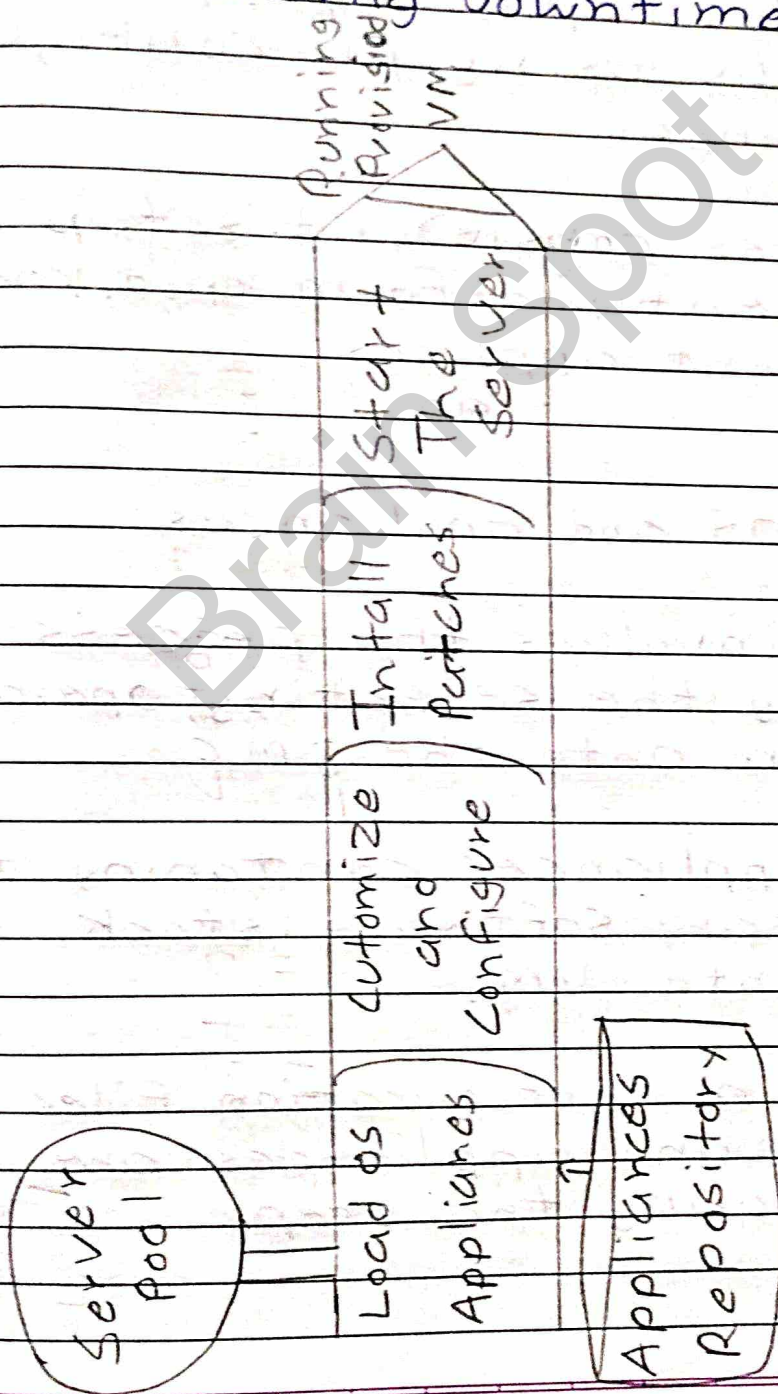 Downtime
Server
Pool
Load os
Appliances
Cutomize
and
Configure
Intall
Patches
Start
The
Server
Running
Provision
VM
Appliances
Repository
Brain Spot